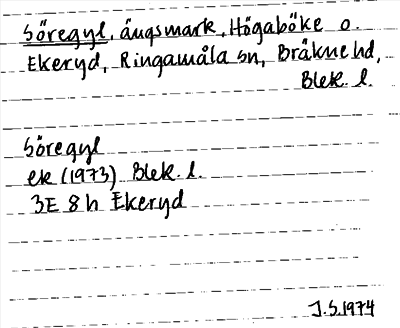 Söregyl, ängsmark, Högaböke o.
Ekeryd, Ringamåla sn, Bräkne hd,
Blek. l.
Söregyl
ek (1973) Blek. l.
3E 8h Ekeryd
J.S. 1974